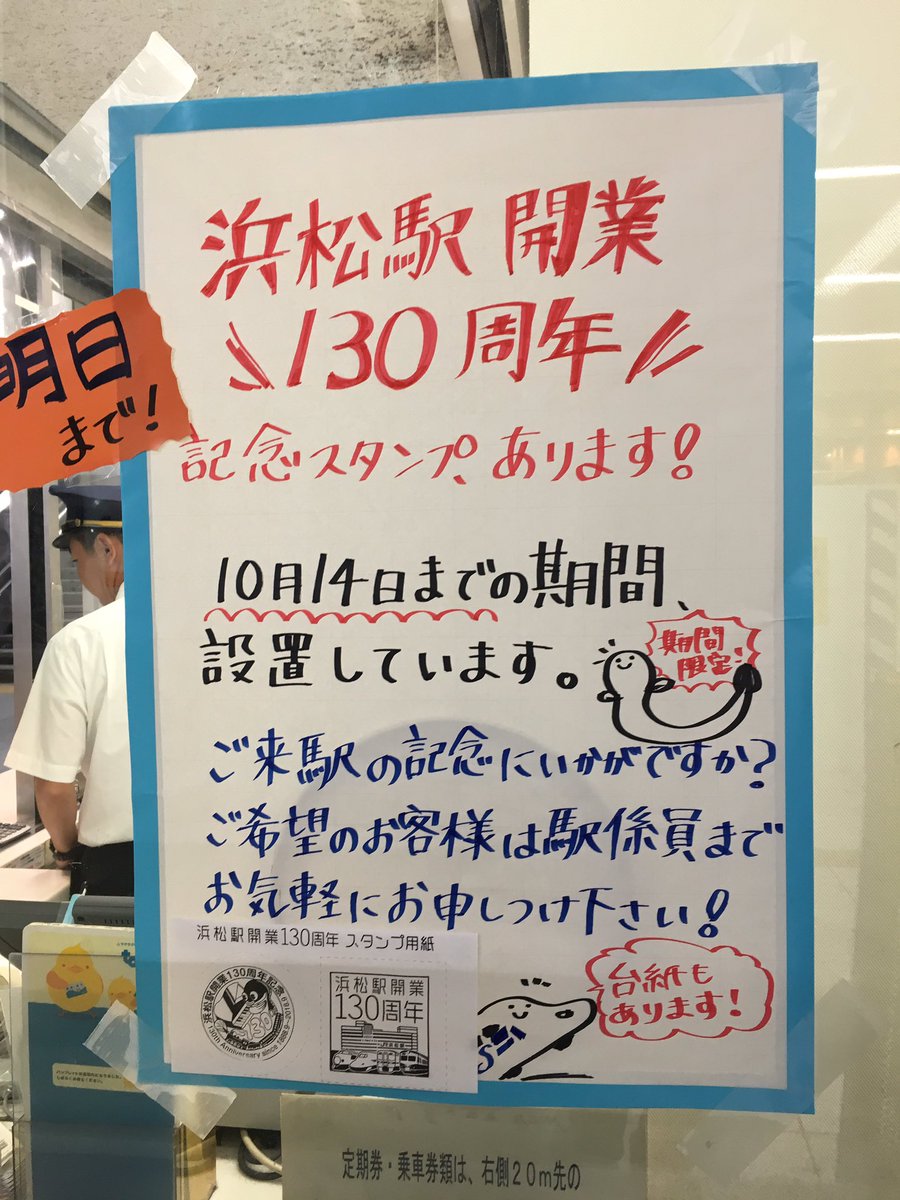 浜松駅 開業
130周年
記念スタンプ、あります!
明日
まで!
10月14日までの期間、
設置しています。
期間
限定!
ご来駅の記念にいかがですか?
ご希望のお客様は駅係員まで
お気軽にお申しつけ下さい!
浜松駅開業130周年 スタンプ用紙
浜松駅開業130周年記念
130th Anniversary since 1888
浜松駅開業
130周年
台紙も
あります!
定期券・乗車券類は、右側20m先の